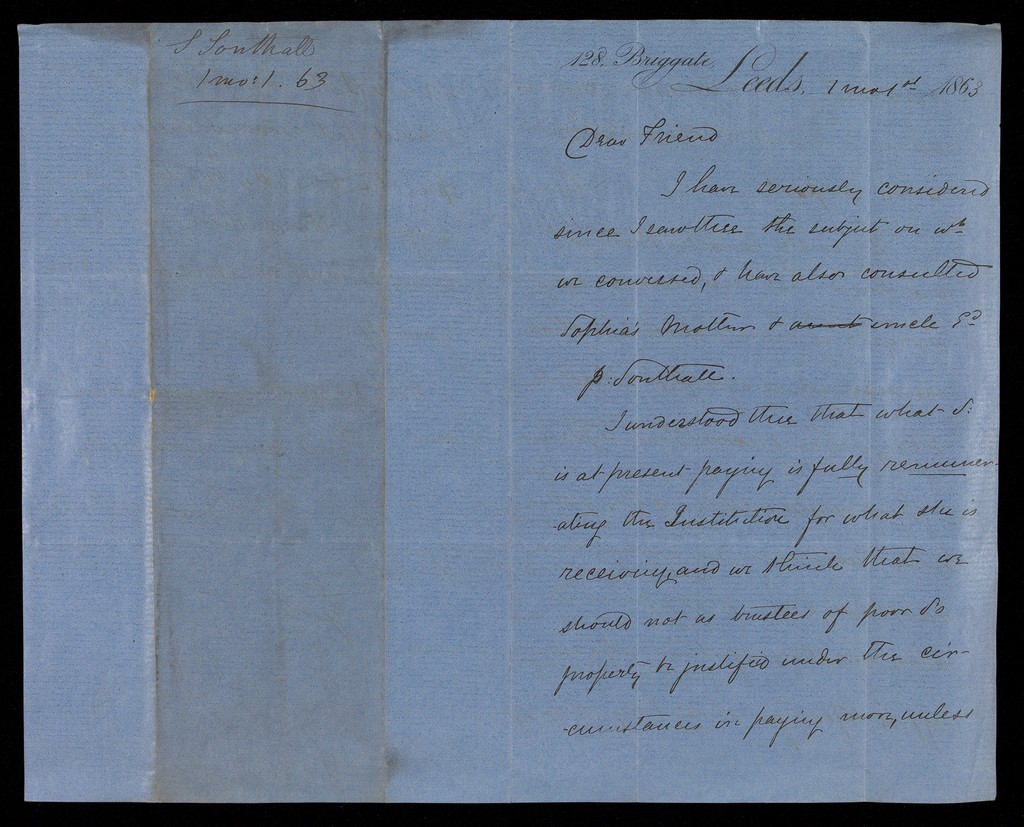 S Southall
1 mo: 1. 63
128, Briggate,
Leeds, 1 mo 1st 1863
Dear Friend
I have seriously considered
since I saw thee the subject on wh
we conversed, & have also consulted
Sophia's Mother & aunt uncle Ed
p: Southall.
I understood thee that what S:
is at present paying is fully remuner-
ating the Institution for what she is
receiving, and we think that we
should not as trustees of poor S's
property be justified under the cir-
-cumstances in paying more, unless